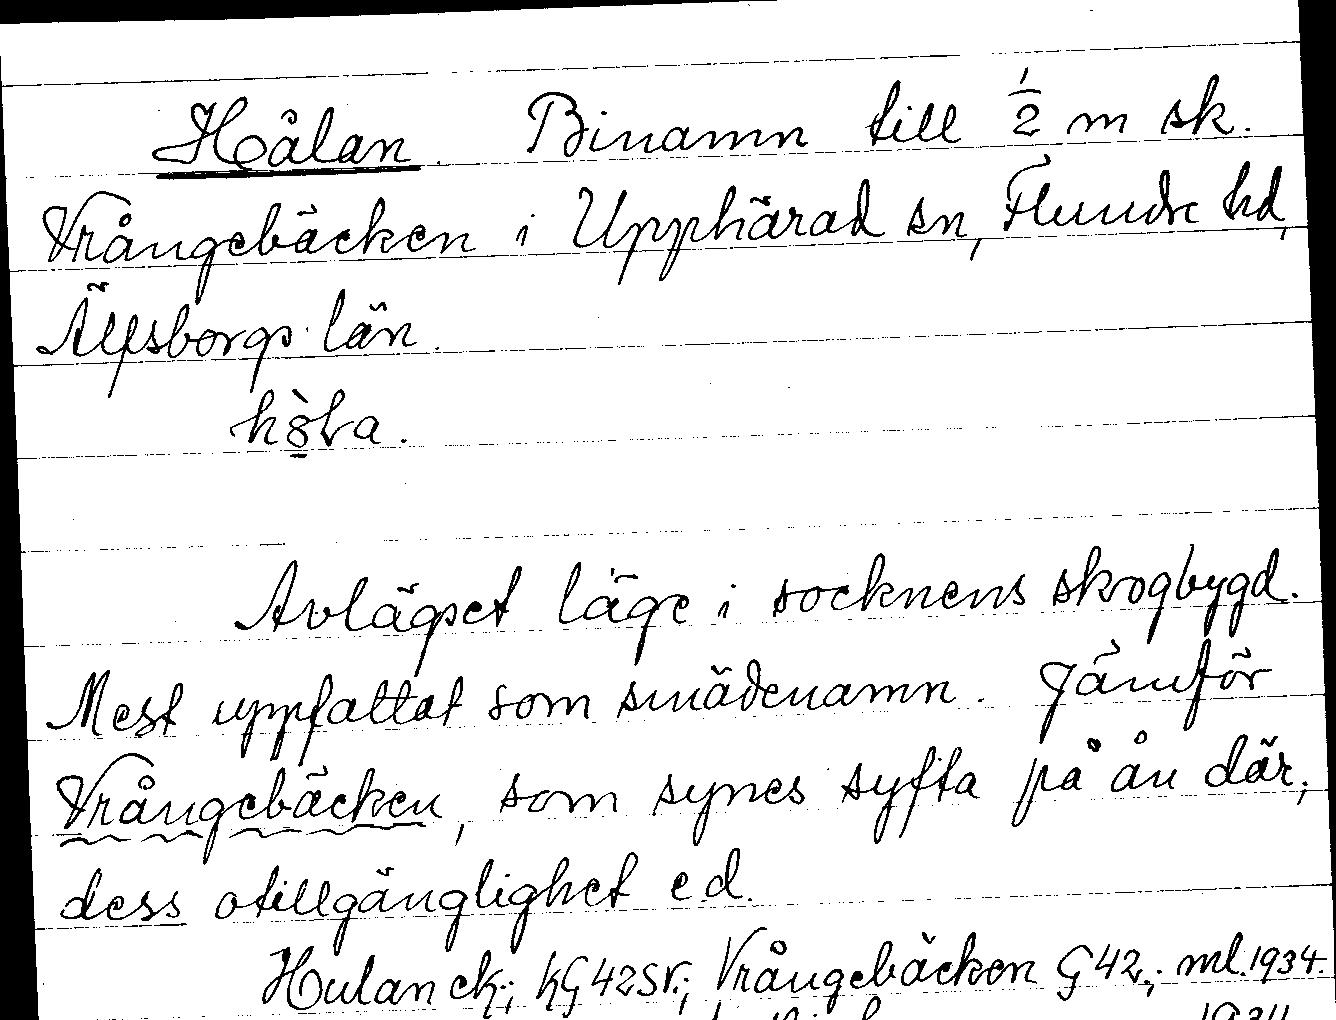 Hålan. Binamn till 1/2 m sk.
Vrångebäcken i Upphärad sn, Flundre hd,
Älfsborgs län.
Avlägset läge i socknens skogbygd.
Mest uppfattat som smädenamn. Jämför
Vrångebäcken, som synes syfta på ån där;
dess otillgänglighet e.d.
Hulan ek.; KG 42SV.; Vrångebäcken G 42.; ml. 1934.
1934